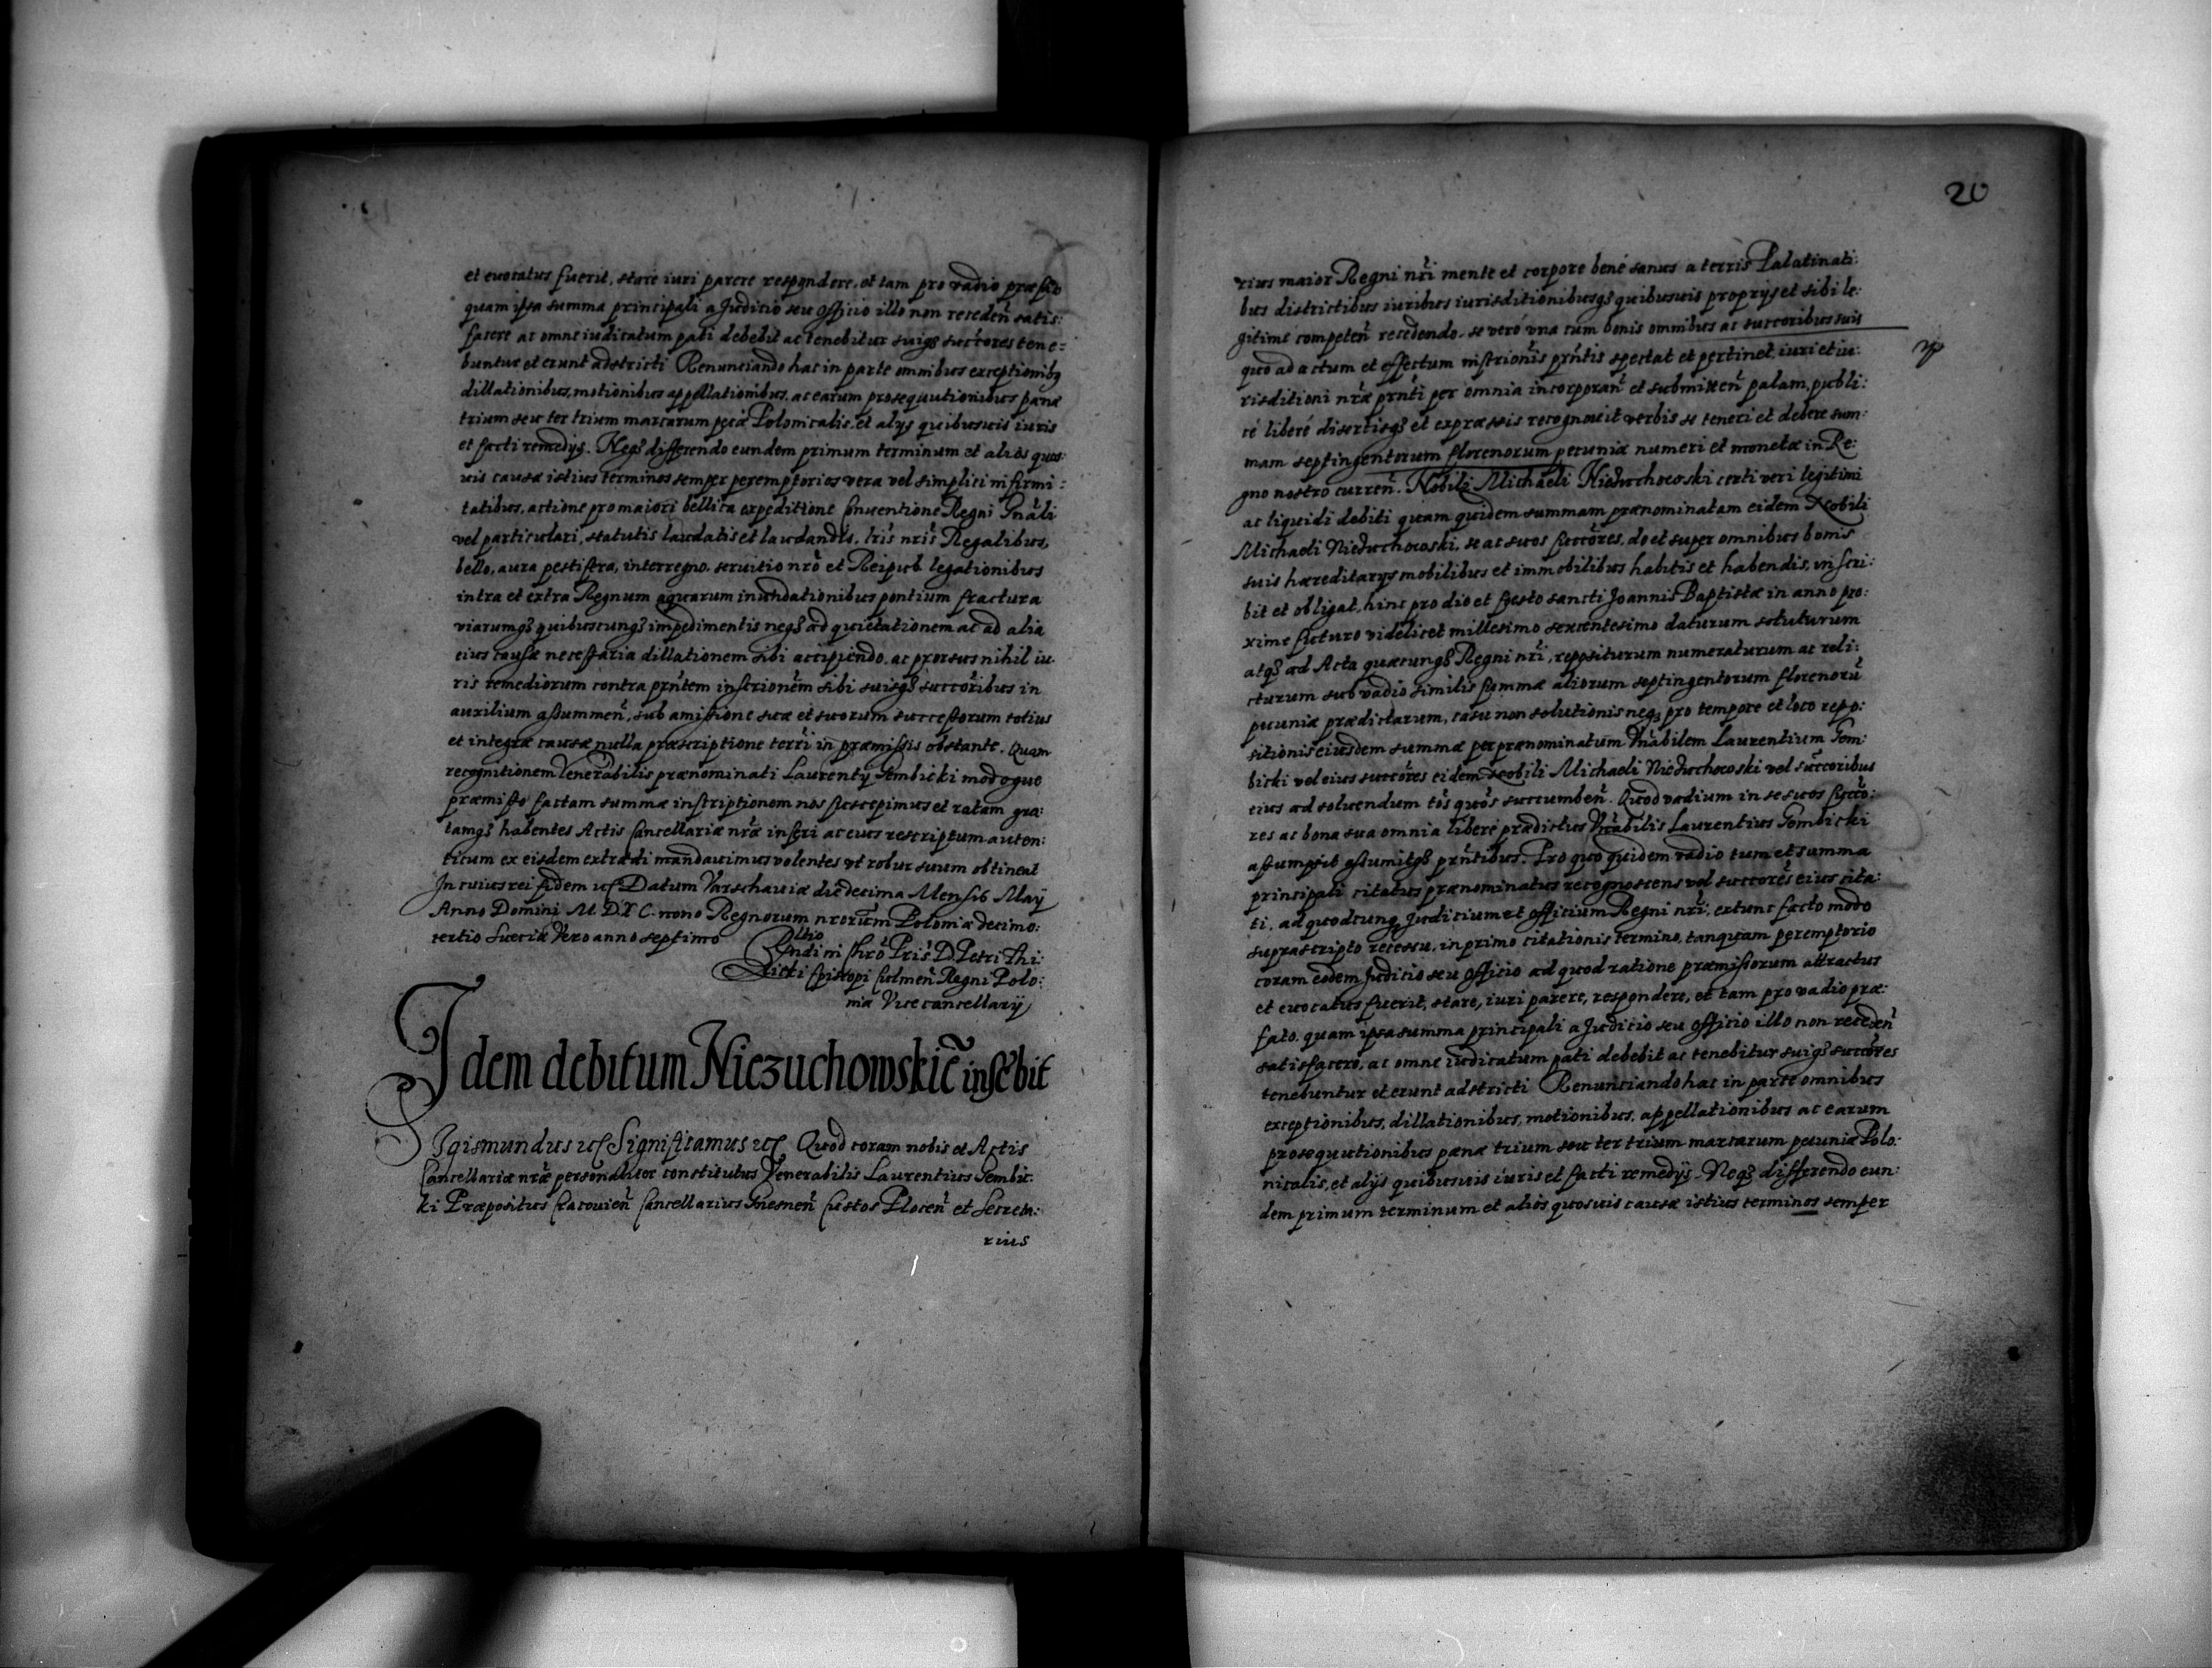 et euocatus fuerit, stare iuri parere respondere, et tam pro vadio præfato
quam ipsa summa principali a Juditio seu Officio illo non receden̄ satis:
facere ac omne iudicatum pati debebit ac tenebitur suiq3 succ̄ores tene=
buntur et erunt adstricti Renunciando hac in parte omnibus exceptionib9
dillationibus, motionibus appellationibus, ac earum prosequutionibus pænæ
trium seu ter trium marcarum pecū Polonicalis, et alijs quibusuis iuris
et facti remedijs. Neq3 differendo eundem primum terminum et alios quos:
uis causæ istius terminos semper peremptorios vera vel simplici infirmi:
tatibus, actione pro maiori bellica expeditione Conuentione Regni Gnāli
vel particulari, statutis laudatis et laudandis, lr̄is nr̄is Regalibus,
bello, aura pestifera, interregno, seruitio nr̄o et Reipub. legationibus
intra et extra Regnum aquarum inundationibus pontium fractura
viarumq3 quibuscunq3 impedimentis neq3 ad quietationem ac ad alia
eius causæ necessaria dillationem sibi accipiendo, ac prorsus nihil iu:
ris remediorum contra prn̄tem inscrionēm sibi suisq3 succ̄oribus in
auxilium assummen̄, sub amissione suæ et suorum successorum totius
et integræ causæ nulla præscriptione terrī in præmissis obstante. Quam
recognitionem Venerabilis prænominati Laurentij Gembicki modoque
præmisso factam summæ inscriptionem nos suscepimus et ratam gra:
tamq3 habentes Actis Cancellariæ nr̄æ inseri ac eius rescriptum auten:
ticum ex eisdem extradi mandauimus volentes vt robur suum obtineat
In cuius rei fidem etc Datum Varschauiæ die decima Mensis Maij
Anno Domini M. D. X C. nono Regnorum nrorūm Poloniæ decimo:
tertio Sueciæ Vero anno septimo
Rltio
Rndi in Chrō Pris D. Petri Thi:
licki Episcopi Culmen̄ Regni Polo:
niæ Vicecancellarij
Idem debitum Niezuchowskiē inscr̄bit
Sigismundus etc Significamus etc Quod coram nobis et Actis
Cancellariæ nr̄æ personaliter constitutus Venerabilis Laurentius Gembic:
ki Præpositus Cracouien̄ Cancellarius Gnesnen̄ Custos Plocen̄ et Secreta:
rius
20
rius maior Regni nr̄i mente et corpore bené sanus a terris Palatinati:
bus districtibus iuribus iurisditionibusq3 quibusuis proprijs et sibi le:
gitimé competen̄ recedendo. se veró vna cum bonis omnibus ac succoribus suis
quo ad actum et effectum inscrionīs prn̄tis spectat et pertinet, iuri et iu:
risditioni nr̄æ prn̄ti per omnia incorporan̄ et submitten̄ palam, publi:
cé liberé disertisq3 et expræssis recognouit verbis se teneri et debere sum:
mam septingentorum florenorum pecuniæ numeri et monetæ in Re:
gno nostro curren̄. Nobili Michaeli Nieżuchowski certi veri legitimi
ac liquidi debiti quam quidem summam prænominatam eidem Nobili
Michaeli Nieżuchowski, se ac suos succ̄ores, de et super omnibus bonis
suis hæreditarijs mobilibus et immobilibus habitis et habendis, inscri:
bit et obligat, hinc pro die et festo sancti Joannis Baptistæ in anno pro:
xime futuro videlicet millesimo sexcentesimo daturum soluturum
atq3 ad Acta quæcunq3 Regni nr̄i, repositurum numeraturum ac reli:
cturum sub vadio similis summæ aliorum septingentorum florenorū
pecuniæ prædictarum, casu non solutionis neq3 pro tempore et loco repo:
sitionis eiusdem summæ per prænominatum Vnābilem Laurentium Gem:
bicki vel eius succ̄ores eidem Nobili Michaeli Nieżuchowski vel succ̄oribus
eius ad soluendum tōs quōs succumben̄. Quod vadium in se suos succo:
res ac bona sua omnia liberé prædictus Vnrābilis Laurentius Gembicki
assumpsit assumitq3 prn̄tibus. Pro quo quidem vadio tum et summa
principali citatus prænominatus recognoscens vel succ̄ores eius cita:
ti, ad quodcunq3 Juditium et officium Regni nr̄i, extunc facto modo
suprascripto recessu, in primo citationis termino, tanquam peremptorio
coram eodem Juditio seu Officio ad quod ratione præmissorum attractus
et euocatus fuerit, stare, iuri parere, respondere, et tam pro vadio præ:
fato, quam ipsa summa principali a Juditio seu officio illo non receden̄
satisfacere, ac omne iudicatum pati debebit ac tenebitur suiq3 succ̄ores
tenebuntur et erunt adstricti Renunciando hac in parte omnibus
exceptionibus, dillationibus, motionibus, appellationibus ac earum
prosequutionibus pænæ trium seu ter trium marcarum pecuniæ Polo:
nicalis, et alijs quibusuis iuris et facti remedijs. Neq3 differendo eun:
dem primum terminum et alios quosuis causæ istius terminos semper